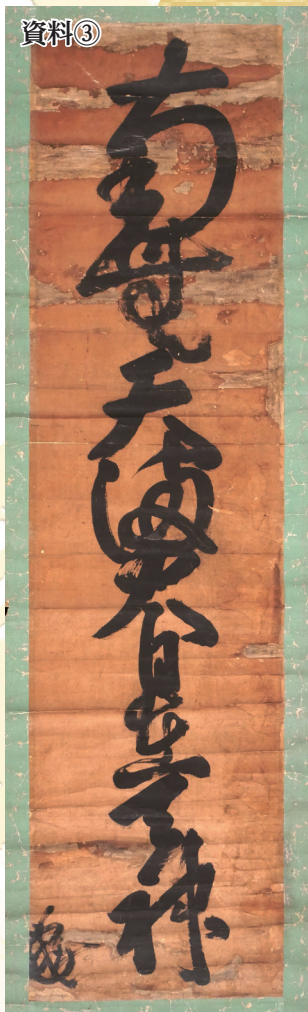 資料③
南無天満大自在天神